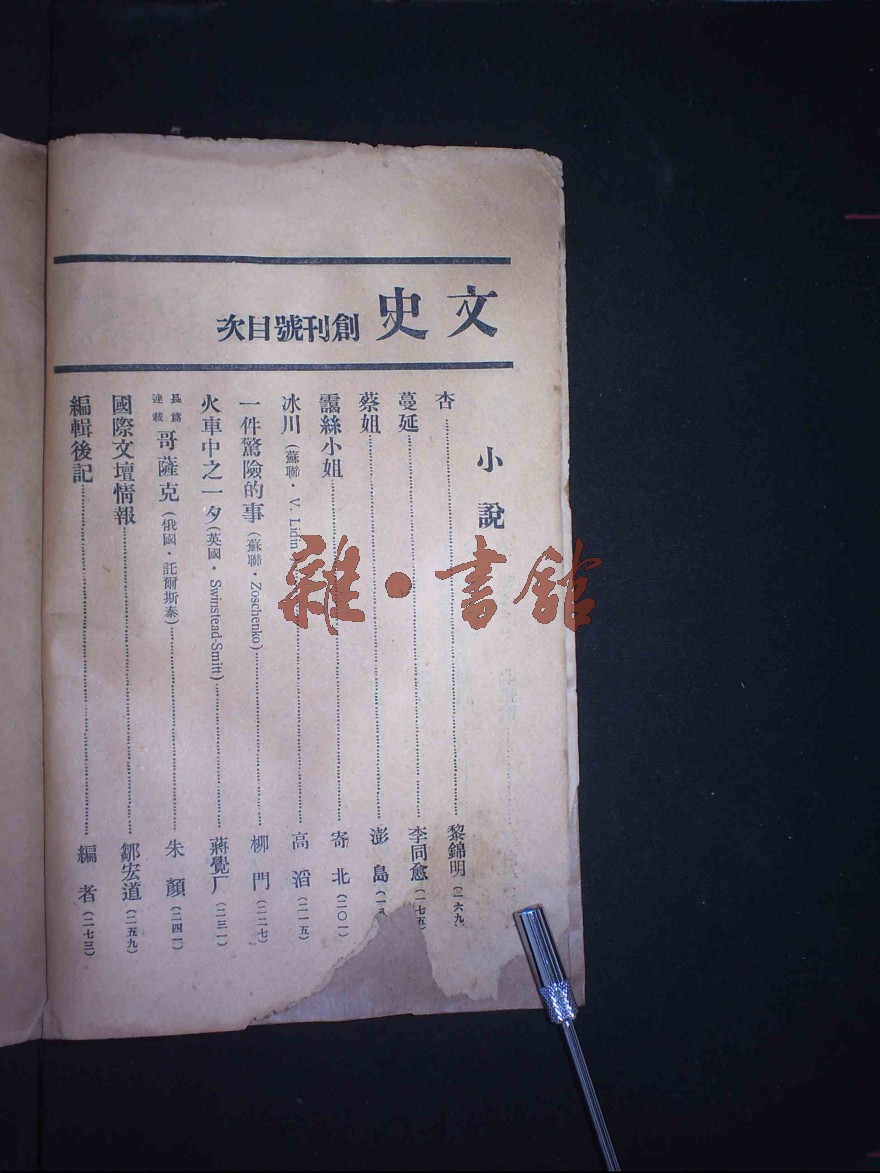 文史 創刊號目次
小說
杏 黎錦明（一六九）
蔓延 李同愈（一七五）
蔡姐 澎島（一
靄絲小姐 寄北（二〇一）
冰川（蘇聯・V. Lidin 高滔（二一五）
一件驚險的事（蘇聯・Zoschenko） 柳門（二二七）
火車中之一夕（英國・Swinstead-Smitt） 蔣覺厂（二三一）
長篇連載 哥薩克（俄國・託爾斯泰） 朱顏（二四一）
國際文壇情報 鄒宏道（二五九）
編輯後記 編者（二七三）
雜・書館